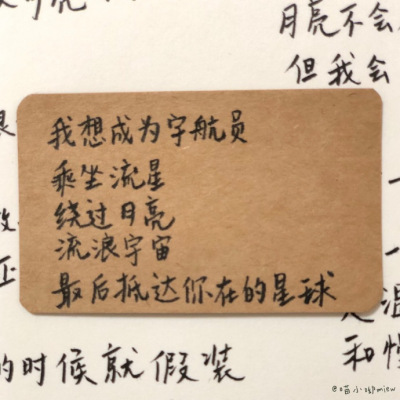 月亮不会
但我会
我想成为宇航员
乘坐流星
绕过月亮
流浪宇宙
最后抵达你在的星球
的时候就假装
和